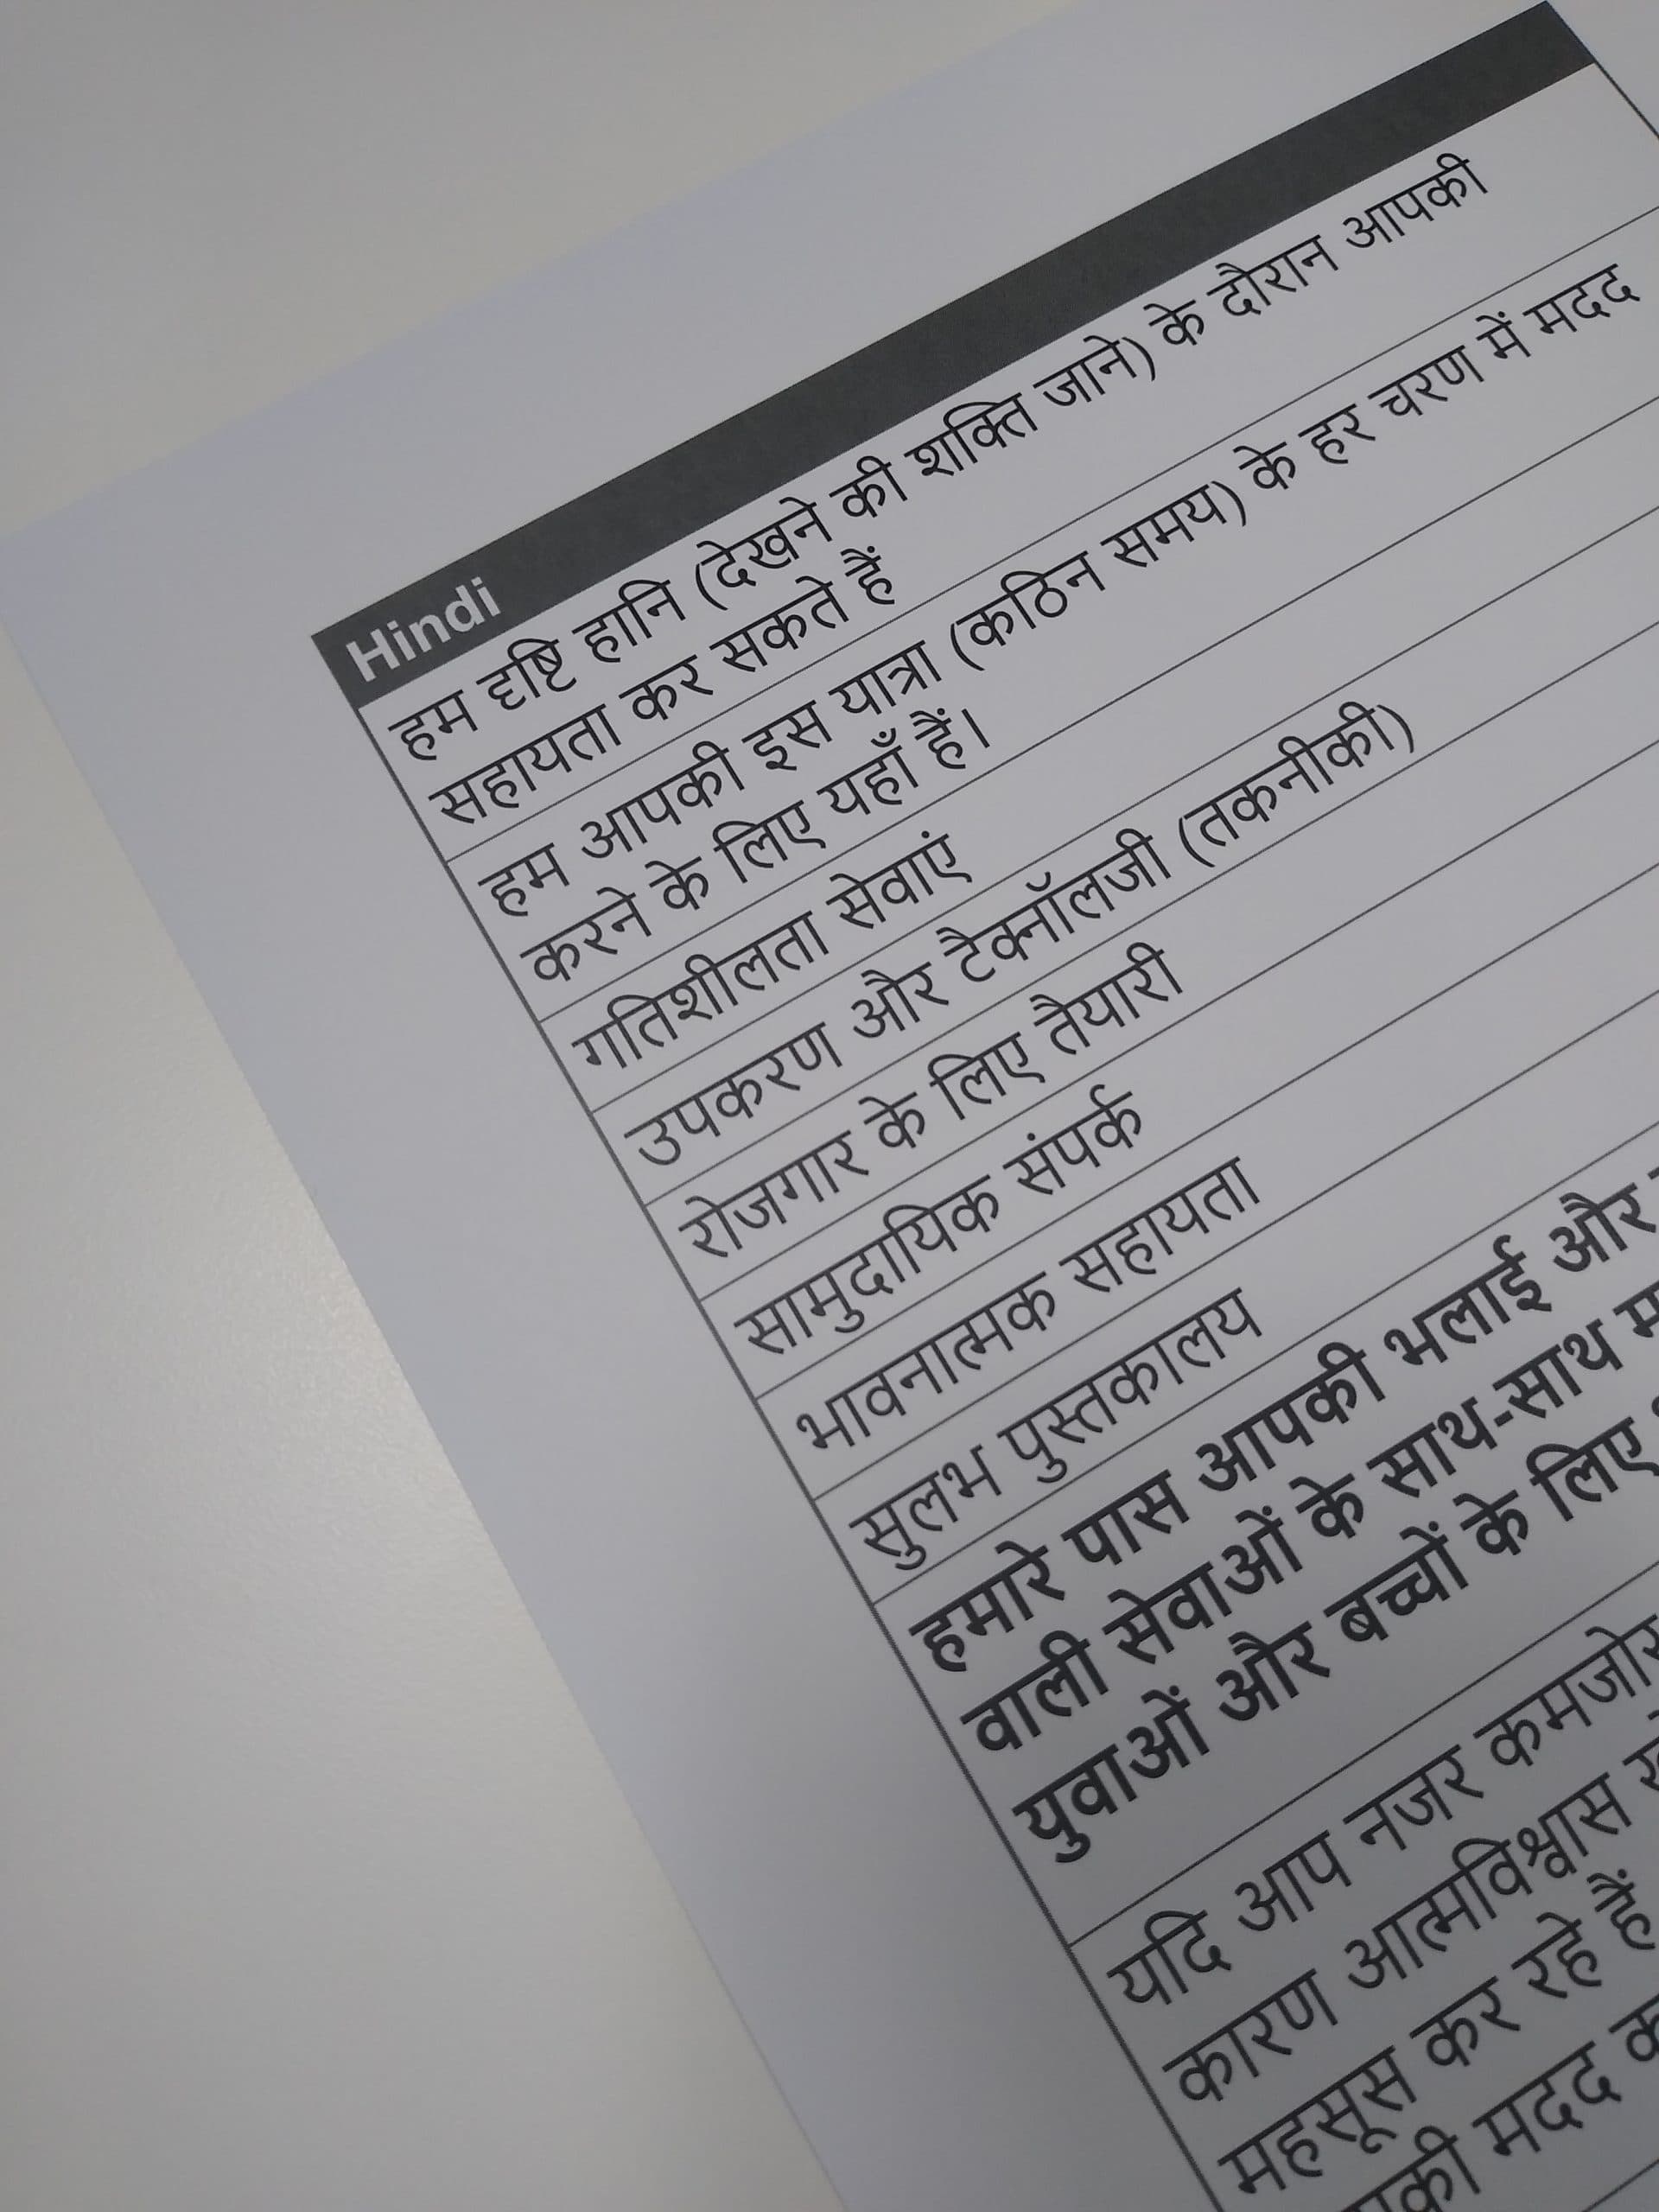 Hindi
हम दृष्टि हानि (देखने की शक्ति जाने) के दौरान आपकी
सहायता कर सकते हैं
हम आपकी इस यात्रा (कठिन समय) के हर चरण में मदद
करने के लिए यहाँ हैं।
गतिशीलता सेवाएं
उपकरण और टैक्नॉलजी (तकनीकी)
रोजगार के लिए तैयारी
सामुदायिक संपर्क
भावनात्मक सहायता
सुलभ पुस्तकालय
हमारे पास आपकी भलाई और
वाली सेवाओं के साथ-साथ
युवाओं और बच्चों के लिए
यदि आप नजर कमजोर
कारण आत्मविश्वास
महसूस कर रहे हैं
मदद